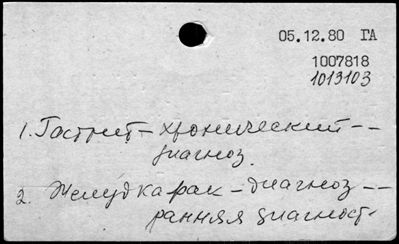 05.12.80 ГА
1007818
1013103
1. Гастрит – хронический – –
диагноз.
2. Желудка рак – диагноз – –
ранняя диагност.